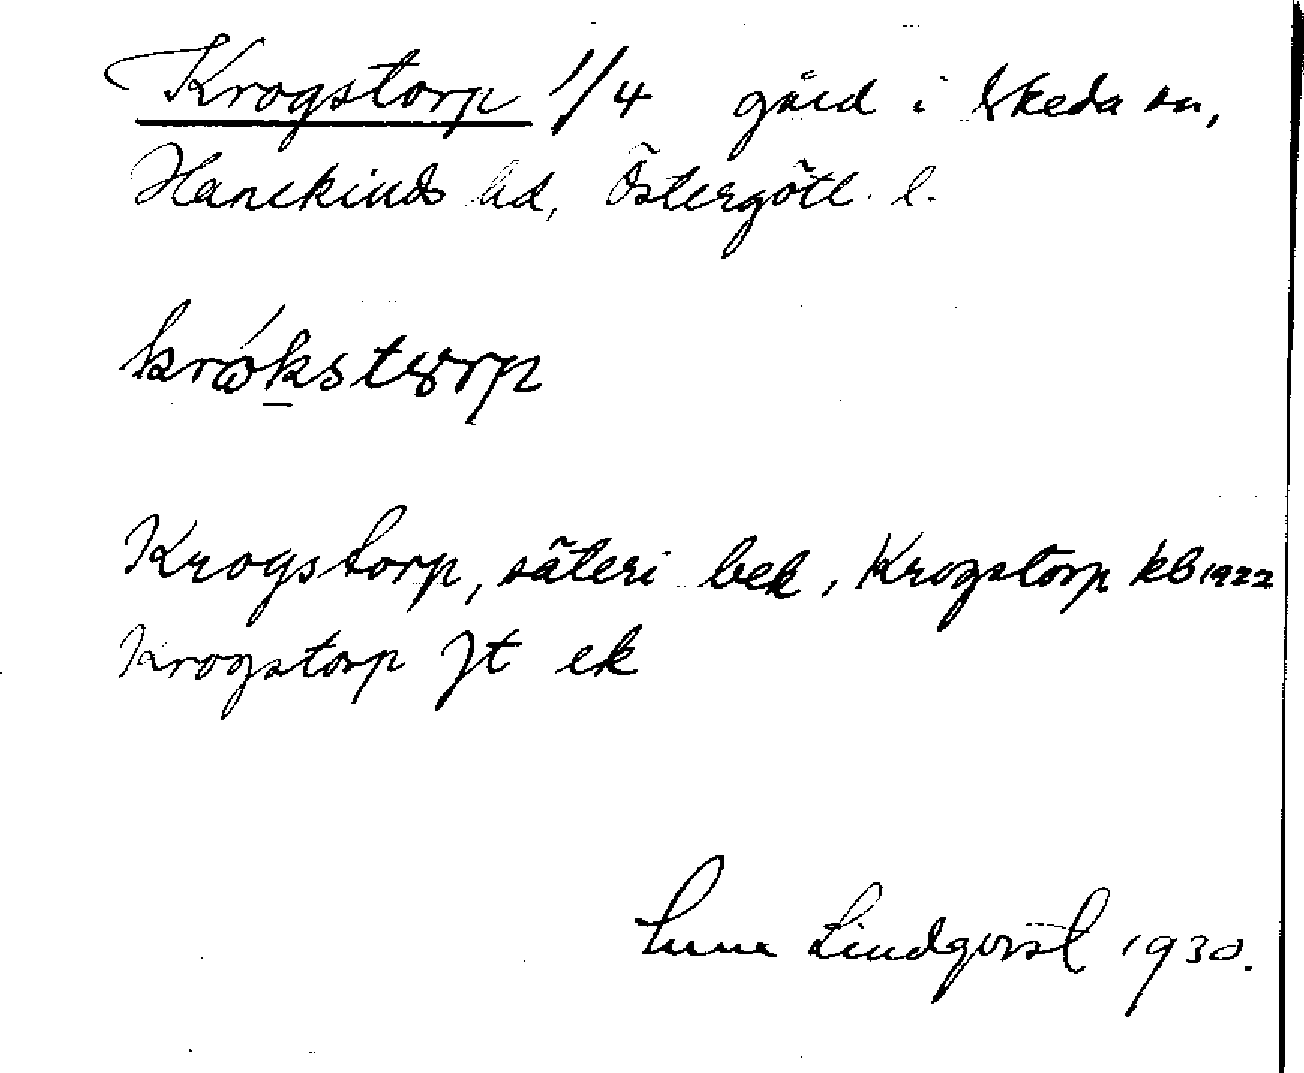 Krogstorp 1/4 gård i Skeda sn,
Hanekinds hd, Östergötl. l.
krώkstɷrp
Krogstorp, säteri bek, Krogstorp kb 1922
Krogstorp Jt ek
Sune Lindqvist 1930.